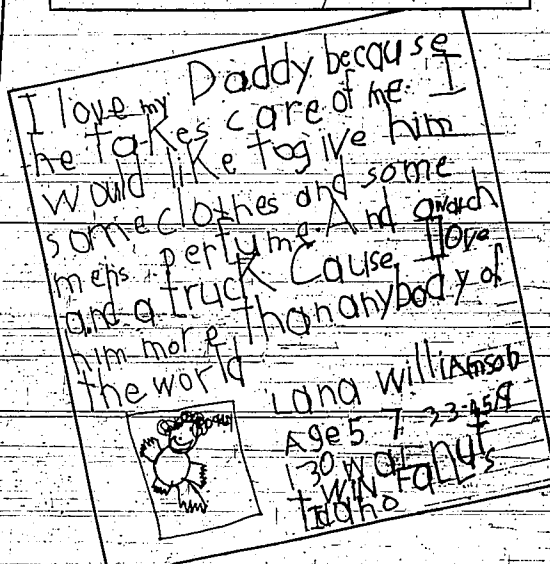 I love my Daddy because
he takes care of me. I
would like to give him
some clothes and some
mens perfume. And a watch
and a truck Cause I love
him more than anybody of
the world
Lana Williamson
Age 5 733-4589
130 Walnut
Twin Falls
Idaho